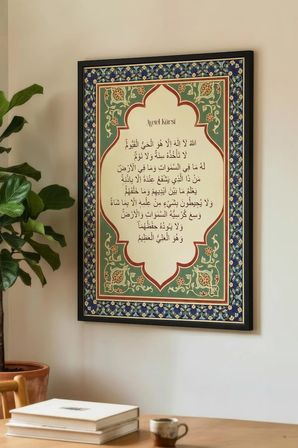 Ayetel Kürsi
اللّٰهُ لَا اِلٰهَ اِلَّا هُوَ الْحَيُّ الْقَيُّومُ
لَا تَأْخُذُهُ سِنَةٌ وَلَا نَوْمٌ
لَهُ مَا فِي السَّمٰوَاتِ وَمَا فِي الْاَرْضِ
مَنْ ذَا الَّذِي يَشْفَعُ عِنْدَهُ اِلَّا بِاِذْنِهِ
يَعْلَمُ مَا بَيْنَ اَيْدِيهِمْ وَمَا خَلْفَهُمْ
وَلَا يُحِيطُونَ بِشَيْءٍ مِنْ عِلْمِهِ اِلَّا بِمَا شَاءَ
وَسِعَ كُرْسِيُّهُ السَّمٰوَاتِ وَالْاَرْضَ
وَلَا يَئُودُهُ حِفْظُهُمَا
وَهُوَ الْعَلِيُّ الْعَظِيمُ